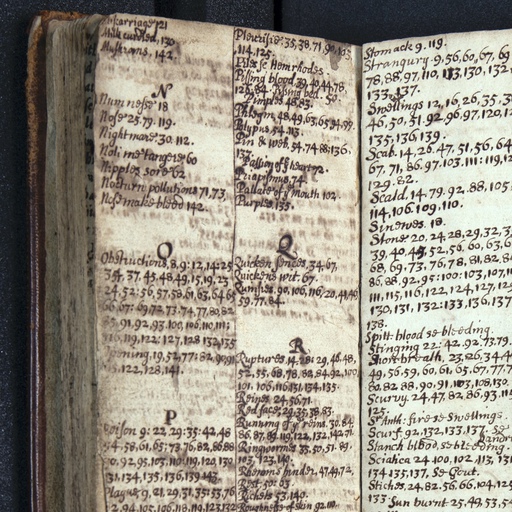 Miscarriage 121
Milk curdled, 130
Mushroms. 142.
N
Numnesse 18
Nose 25.79.119.
Nightmare 30.112.
Noli me tangere, 60
Nipples sore 62
Nocturn pollutions 71,73,
Nose make bleed 142.
O
Obstructions, 8.9: 12,14:25
34, 37, 45, 48, 49, 15, 19, 23
24, 52: 56, 57, 58, 61, 63, 64, 65
66, 67: 49, 72, 73, 74, 77, 80, 82
91, 92, 93, 100, 106, 110, 111;
119, 122: 127, 128, 132, 135
19, 52, 77: 82, 90, 91
122, 128, 141.
P
9: 22, 29: 35: 42, 48
54, 58, 61, 65: 73, 76, 82, 86, 88
90, 92, 95, 103, 110: 119, 120, 130
31, 134, 135, 136, 139
Plague, 9, 21, 29, 31, 35, 53, 76
94, 105, 106, 118, 119, 123, 132
Pleurisie: 35, 38, 71, 90, 105,
114, 125.
Piles se Hemrhodes.
Pissing blood, 39, 40, 44, 78,
126, 84. Pissing bed. 50.
Pimples 48, 83.
Phlegm, 48, 49, 63, 65, 94, 97.
Polypus 54. 113.
Pin & web, 54, 74, 88; 136,
Passion of ye heart 72.
Priapismus, 74,
Pallate of ye mouth 102
Purples 135.
Q
Quicken senses, 34, 67,
Quickens wit. 67.
90, 106, 116, 20, 41, 48
59, 77. 84.
R
Ruptures, 14: 28: 29, 46, 48,
52, 55, 68, 78, 82, 84, 92, 100
101, 106, 116, 131, 134, 135.
Reines 24, 56, 71.
Red face, 29, 35, 38, 83.
Running of ye reins. 30, 84
86, 87, 89, 119, 122, 132, 142, 71.
Ringwormes 33, 50, 51. 89.
103, 123, 140.
47, 49, 72,
Rest 50: 63.
Rickets 53, 140.
Roughness of skin 92, 110.
Stomack 9. 119.
Strangury. 9, 56, 60, 67, 69
78, 88, 97, 110, 113, 130, 132,
133, 137.
Swellings 12, 16, 26, 35, 3
46, 50, 51, 92, 96, 97, 120, 12
135, 136, 139.
Scab. 14, 26, 47, 51, 56, 64
67, 71, 86, 97, 103, 111: 119, 12
129, 82.
Scald, 14, 79, 92, 88, 105:
114, 106, 109, 110.
Sinewes 18.
Stone 20, 24, 28, 29, 32, 3
39, 40, 48, 52, 56, 60, 63, 6
68, 69, 73, 76, 78, 81, 82, 8
86, 88, 92, 95: 100: 103, 107, 11
111, 115, 116, 122, 124, 127, 12
130, 131, 132: 133, 136, 137
138.
Spitt blood se bleeding.
Stinging 22: 42, 92, 73, 79.
Short breath, 23, 26, 34, 4
49, 56, 59, 60, 61, 65, 67, 77, 7
80, 82, 88, 90, 91, 103, 108, 130,
Scurvy, 24, 47, 82, 86, 93, 11
125.
St Anth: fire se Swellings.
Scurf 92, 132, 133, 137. se
Stanch blood, se bleeding.
Sciatica 24, 100, 102, 113, 131
134, 135, 137, se Gout.
Stiches, 24, 82, 56, 66, 104, 12
133 Sun burnt 25, 49, 53, 5